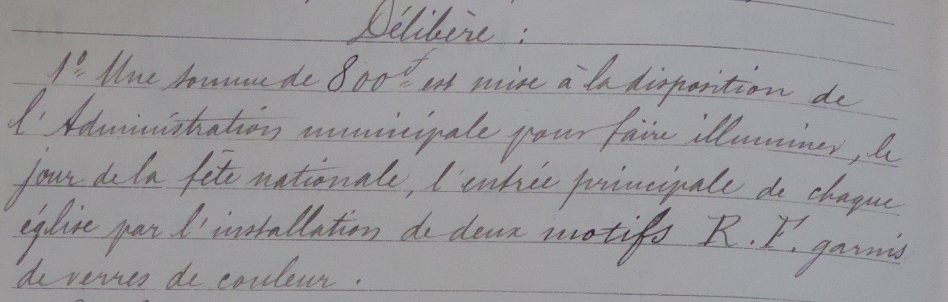 Délibère :
1º Une somme de 800f est mise à la disposition de
l'Administration municipale pour faire illuminer, le
jour de la fête nationale, l'entrée principale de chaque
église par l'installation de deux motifs R. F. garnis
de verres de couleur.